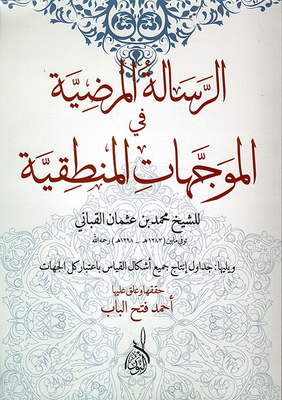 الرسالة المرضية
في
الموجهات المنطقية
للشيخ محمد بن عثمان القباني
توفي مابين (١٢٨٣هـ - ١٢٩٨هـ) رحمه الله
ويليها: جداول إنتاج جميع أشكال القياس باعتبار كل الجهات
حققها وعلق عليها
أحمد فتح الباب